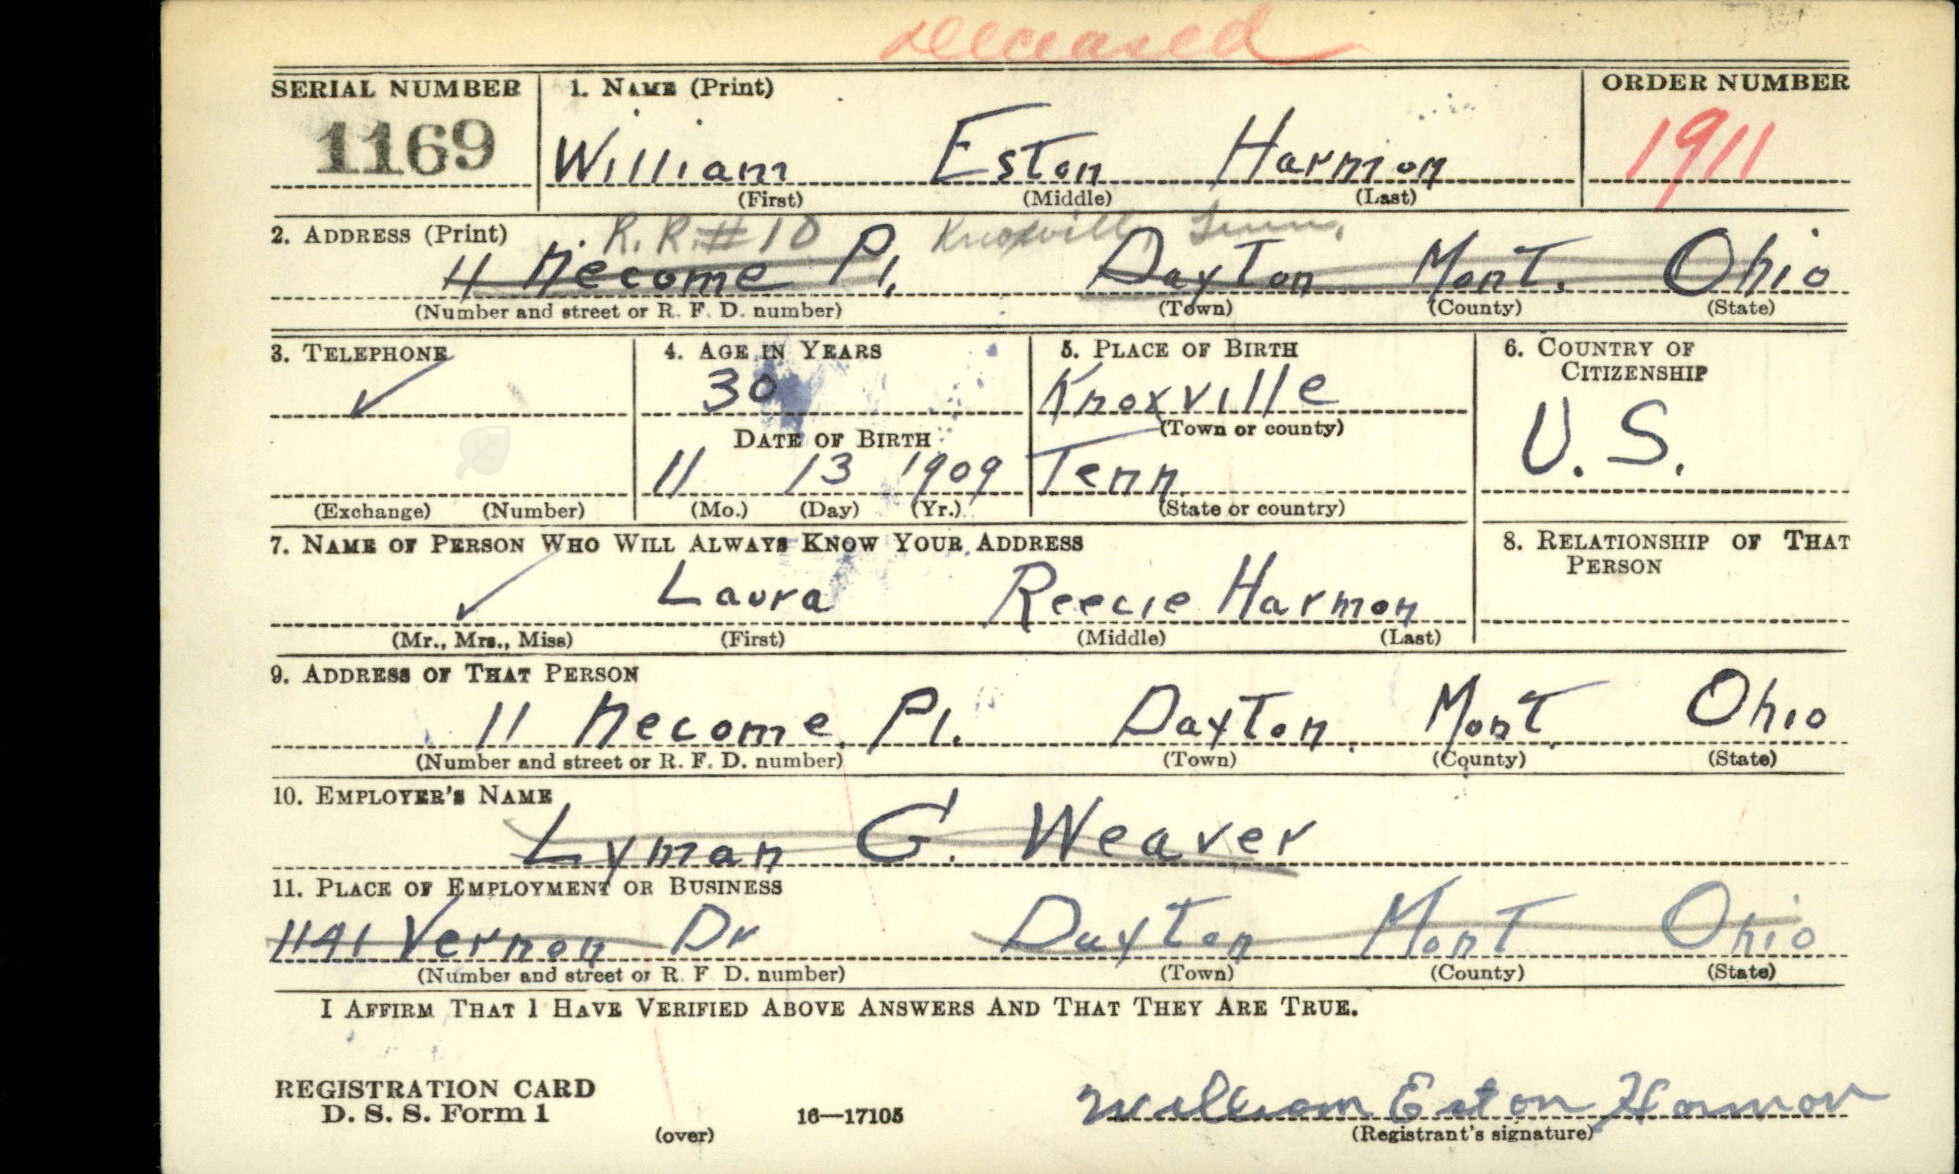 Deceased
SERIAL NUMBER 1. NAME (Print) ORDER NUMBER
1169 William Eston Harmon 1911
(First) (Middle) (Last)
2. ADDRESS (Print) R.R.#10 Knoxville, Tenn.
11 Necome Pl. Dayton Mont. Ohio
(Number and street or R. F. D. number) (Town) (County) (State)
3. TELEPHONE 4. AGE IN YEARS 5. PLACE OF BIRTH 6. COUNTRY OF CITIZENSHIP
30 Knoxville U. S.
DATE OF BIRTH (Town or county)
11 13 1909 Tenn.
(Exchange) (Number) (Mo.) (Day) (Yr.) (State or country)
7. NAME OF PERSON WHO WILL ALWAYS KNOW YOUR ADDRESS 8. RELATIONSHIP OF THAT PERSON
Laura Reecie Harmon
(Mr., Mrs., Miss) (First) (Middle) (Last)
9. ADDRESS OF THAT PERSON
11 Necome Pl. Dayton, Mont. Ohio
(Number and street or R. F. D. number) (Town) (County) (State)
10. EMPLOYER'S NAME
Lyman G. Weaver
11. PLACE OF EMPLOYMENT OR BUSINESS
1141 Vernon Dr Dayton Mont Ohio
(Number and street or R. F. D. number) (Town) (County) (State)
I AFFIRM THAT I HAVE VERIFIED ABOVE ANSWERS AND THAT THEY ARE TRUE.
REGISTRATION CARD
D. S. S. Form 1 16—17105 William Eston Harmon
(over) (Registrant's signature)